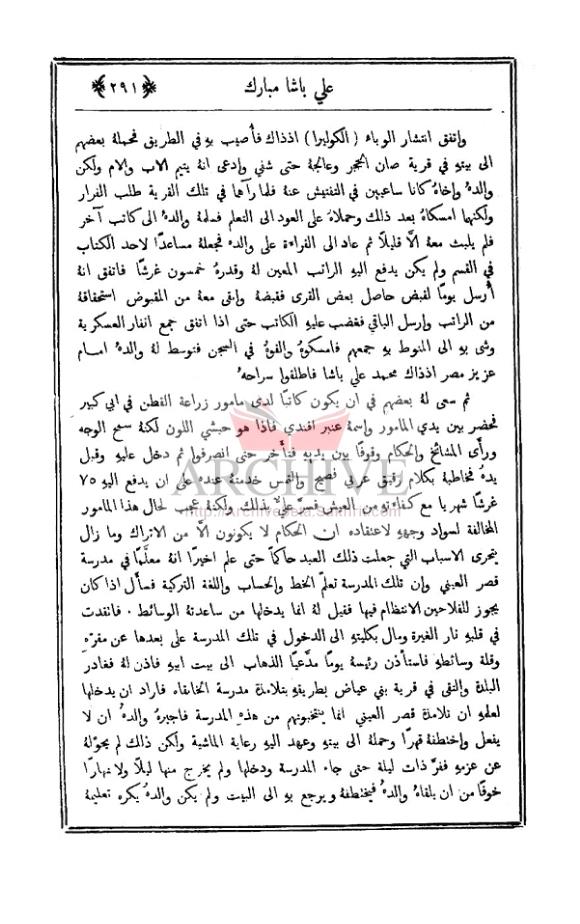 علي باشا مبارك
﴿٢٩١﴾
واتفق انتشار الوباء (الكوليرا) اذذاك فأصيب بهِ في الطريق فحملهُ بعضهم
الى بيتهِ في قرية صان الحجر وعالجهُ حتى شفي وادعى انهُ يتيم الاب والام ولكن
والدهُ واخاهُ كانا ساعيين في التفتيش عنهُ فلما رآهما في تلك القرية طلب الفرار
ولكنهما امسكاهُ بعد ذلك وحملاهُ على العود الى التعلم فسلمهُ والدهُ الى كاتب آخر
فلم يلبث معهُ الَّا قليلًا ثم عاد الى القراءة على والدهِ فجعلهُ مساعدًا لاحد الكتاب
في القسم ولم يكن يدفع اليهِ الراتب المعين لهُ وقدرهُ خمسون غرشًا فاتفق انهُ
أُرسل يومًا لقبض حاصل بعض القرى فقبضهُ وابقى معهُ من المقبوض استحقاقهُ
من الراتب وارسل الباقي فغضب عليهِ الكاتب حتى اذا اتفق جمع انفار العسكرية
وشى بهِ الى المنوط بهِ جمعهم فامسكوهُ والقوهُ في السجن فتوسط لهُ والدهُ امام
عزيز مصر اذذاك محمد علي باشا فاطلقوا سراحهُ
ثم سعى لهُ بعضهم في ان يكون كاتبًا لدى مامور زراعة القطن في ابي كبير
فحضر بين يدي المامور واسمهُ عنبر افندي فاذا هو حبشي اللون لكنهُ سمح الوجه
ورأى المشائخ والحكام وقوفًا بين يديهِ فتأخر حتى انصرفوا ثم دخل عليهِ وقبل
يدهُ فخاطبهُ بكلام رقيق عربي فصيح والتمس خدمتهُ عنده على ان يدفع اليهِ ٧٥
غرشًا شهريًا مع كفاءتهِ من العيش فسرَّ عليٌّ بذلك ولكنهُ عجب لحال هذا المامور
المخالفة لسواد وجههِ لاعتقاده ان الحكام لا يكونون الَّا من الاتراك وما زال
يتحرى الاسباب التي جعلت ذلك العبد حاكمًا حتى علم اخيرًا انهُ معلَّمًا في مدرسة
قصر العيني وان تلك المدرسة تعلم الخط والحساب واللغة التركية فسأل اذا كان
يجوز للفلاحين الانتظام فيها فقيل لهُ انما يدخلها من ساعدتهُ الوسائط. فاتقدت
في قلبهِ نار الغيرة ومال بكليتهِ الى الدخول في تلك المدرسة على بعدها عن مقرّهِ
وقلة وسائطهِ فاستأذن رئيسهُ يومًا مدَّعيًا الذهاب الى بيت ابيهِ فاذن لهُ فغادر
البلدة والتقى في قرية بني عياض بطريقهِ بتلامذة مدرسة الخانقاء فاراد ان يدخلها
لعلمهِ ان تلامذة قصر العيني انما ينتخبونهم من هذهِ المدرسة فاجبرهُ والدهُ ان لا
يفعل واختطفهُ قهرًا وحملهُ الى بيتهِ وعهد اليهِ رعاية الماشية ولكن ذلك لم يحوّلهُ
عن عزمهِ ففرَّ ذات ليلة حتى جاء المدرسة ودخلها ولم يخرج منها ليلًا ولا نهارًا
خوفًا من ان يلقاهُ والدهُ فيختطفهُ ويرجع بهِ الى البيت ولم يكن والدهُ يكره تعليمهُ
ARCHIVE